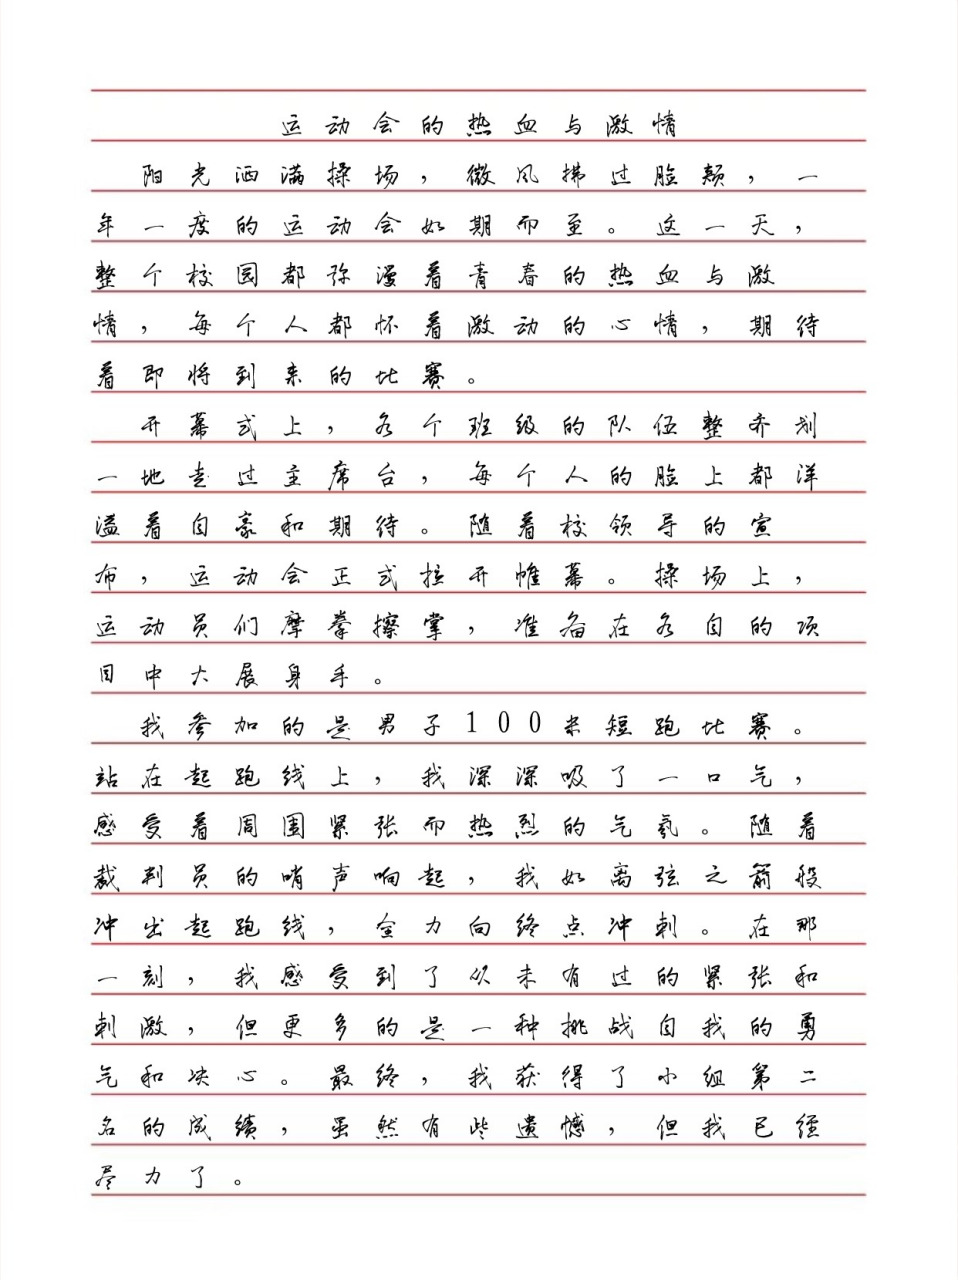 运动会的热血与激情
阳光洒满操场，微风拂过脸颊，一
年一度的运动会如期而至。这一天，
整个校园都弥漫着青春的热血与激
情，每个人都怀着激动的心情，期待
着即将到来的比赛。
开幕式上，各个班级的队伍整齐划
一地走过主席台，每个人的脸上都洋
溢着自豪和期待。随着校领导的宣
布，运动会正式拉开帷幕。操场上，
运动员们摩拳擦掌，准备在各自的项
目中大展身手。
我参加的是男子100米短跑比赛。
站在起跑线上，我深深吸了一口气，
感受着周围紧张而热烈的气氛。随着
裁判员的哨声响起，我如离弦之箭般
冲出起跑线，全力向终点冲刺。在那
一刻，我感受到了从未有过的紧张和
刺激，但更多的是一种挑战自我的勇
气和决心。最终，我获得了小组第二
名的成绩，虽然有些遗憾，但我已经
尽力了。